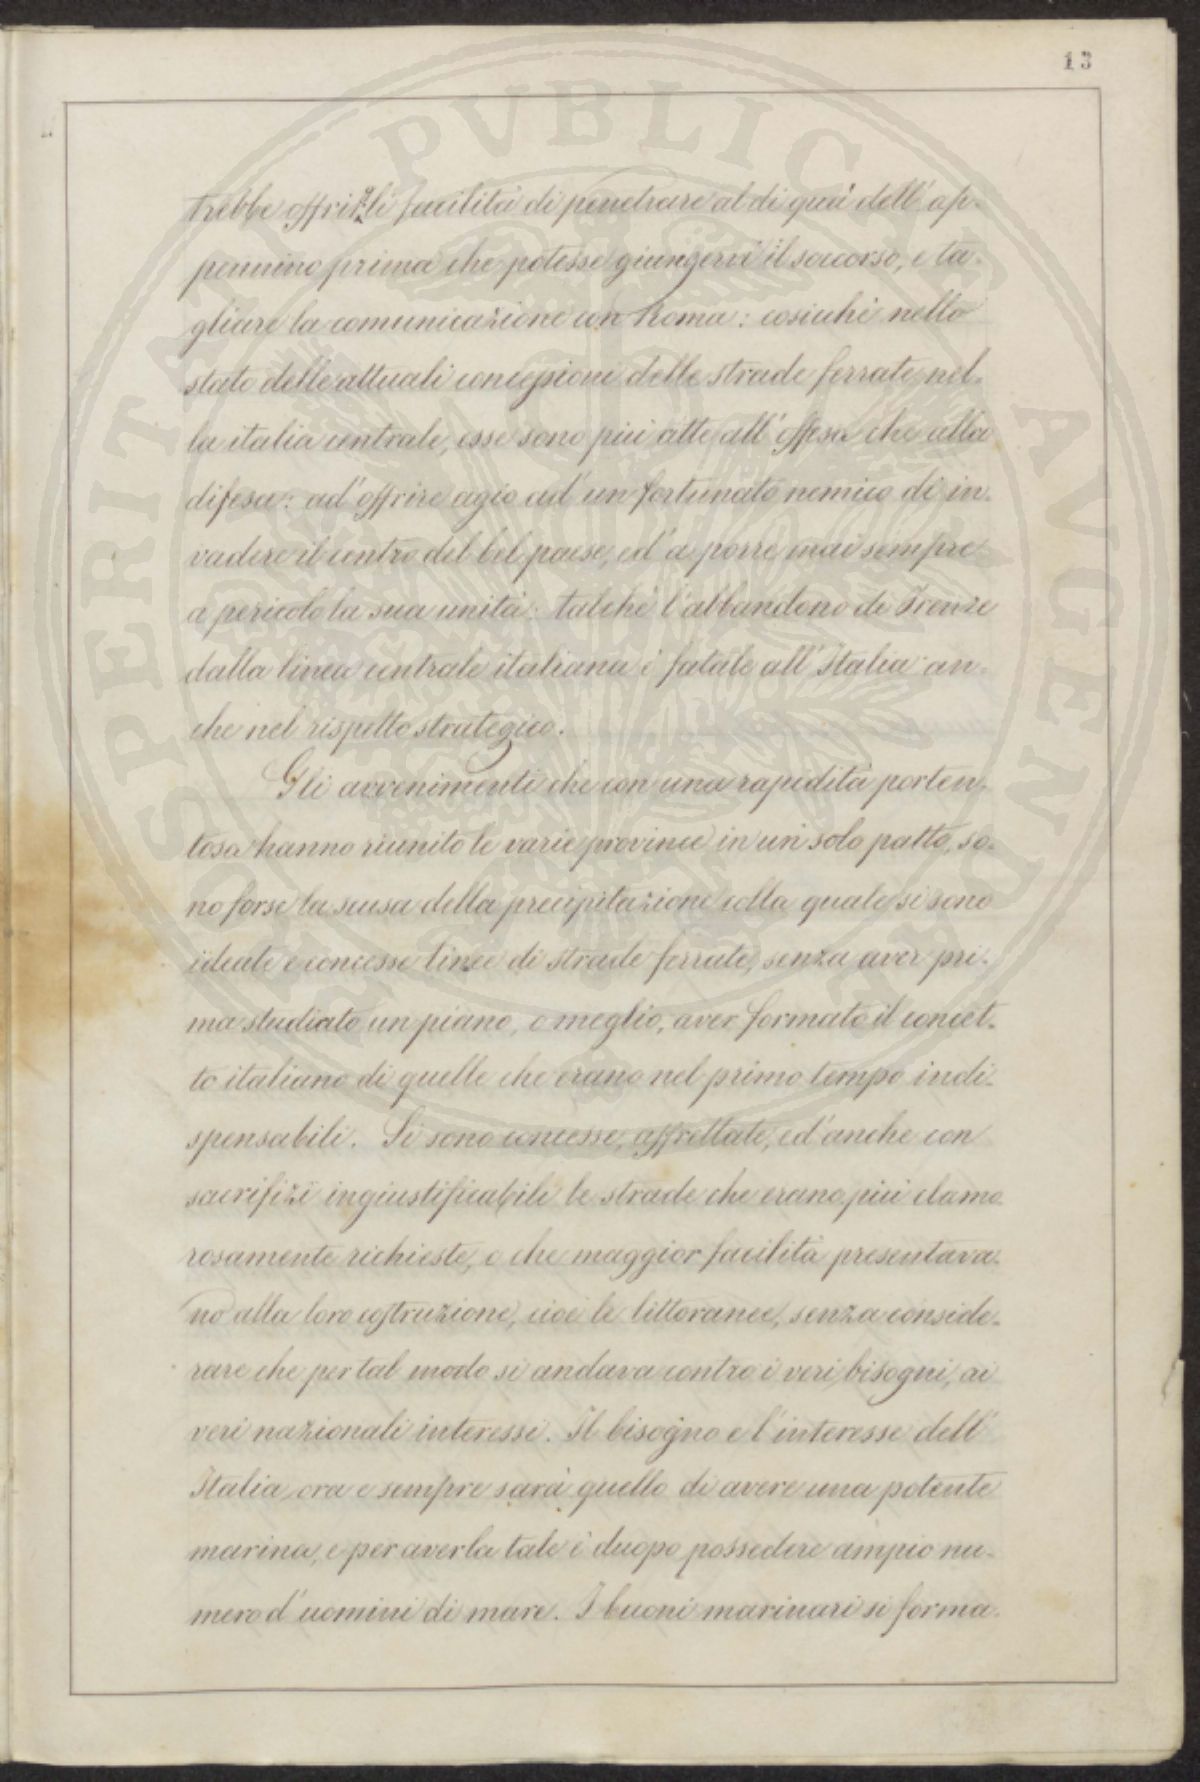 13
trebbe offrirgli facilità di penetrare al di quà dell'ap-
pennino prima che potesse giungervi il soccorso, e ta-
gliare la comunicazione con Roma: cosicchè nello
stato delle attuali concessioni delle strade ferrate nel-
la italia centrale, esse sono più atte all'offesa che alla
difesa: ad'offrire agio ad'un fortunato nemico di in-
vadere il centro del bel paese, ed'a porre mai sempre
a pericolo la sua unità: talchè l'abbandono di Firenze
dalla linea centrale italiana è fatale all'Italia an-
che nel rispetto strategico.
Gli avvenimenti che con una rapidità porten-
tosa hanno riunito le varie province in un solo patto, so-
no forse la scusa della precipitazione colla quale si sono
ideate e concesse linee di strade ferrate, senza aver pri-
ma studiato un piano, o meglio, aver formato il concet-
to italiano di quelle che erano nel primo tempo indi-
spensabili. Si sono concesse, affrettate, ed'anche con
sacrifizi ingiustificabili le strade che erano più clamo-
rosamente richieste, o che maggior facilità presentava-
no alla loro costruzione, cioè le littoranee, senza conside-
rare che per tal modo si andava contro i veri bisogni, ai
veri nazionali interessi. Il bisogno e l'interesse dell'
Italia, ora e sempre sarà quello di avere una potente
marina, e per averla tale è duopo possedere ampio nu-
mero d'uomini di mare. I buoni marinari si forma-
PROSPERITATI PVBLICAE AVGENDAE